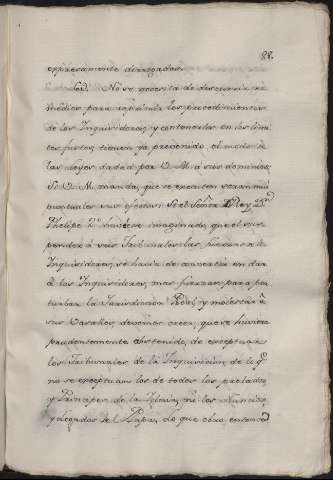 88.
expresamente derrogados.
Señor. No se necesita de descurrir re
medios para reprimir los procedimientos
de los Inquisidores, y contenerlos en los limi
tes justos tienen ya prevenido el medio
las leyes dadas por V. M. a sus dominios
Si V. M. manda, que se executen seran mui
puntuales sus efectos: Si el Señor Rey Dn.
Phelipe 2o. huviese imaginado, que el sus
pender a sus Tribunales las fuerzas de
Inquisidores, se havia de convertir en dar
a los Inquisidores, mas fuerzas, para per
turbar la Jurisdiccion Real, y molestar a
sus Vasallos devemos creer, que se huviera
prudentemente abstenido, de exceptuar
los Tribunales de la Inquisicion, de lo qe.
no se exceptuan los de todos los prelados
y Principes de la Iglesia, ni los Nuncios,
y Legados del Papa, Lo que obro entonces